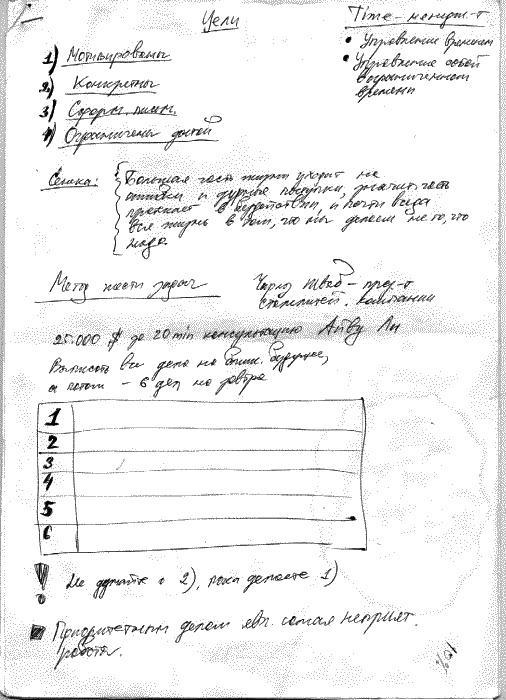 Цели
Time-менедж-т
• Управление временем
• Управление собой
в ограниченном
времени
1) Мотивированы
2) Конкретны
3) Сформ. письм.
4) Ограничены датой
Сенека: Большая часть жизни уходит на
ошибки и дурные поступки, значит. часть
протекает в бездействии, и почти всегда
вся жизнь в том, что мы делаем не то, что
надо
Метод шести задач
Чарльз Шваб - през-т
сталелитей. компании
25.000 $ за 20 min консультацию Айву Ли
Выписать все дела на ближ. будущее,
а потом - 6 дел на завтра
1
2
3
4
5
6
! Не думайте о 2), пока делаете 1)
Приоритетным делом явл. самая неприят.
работа.